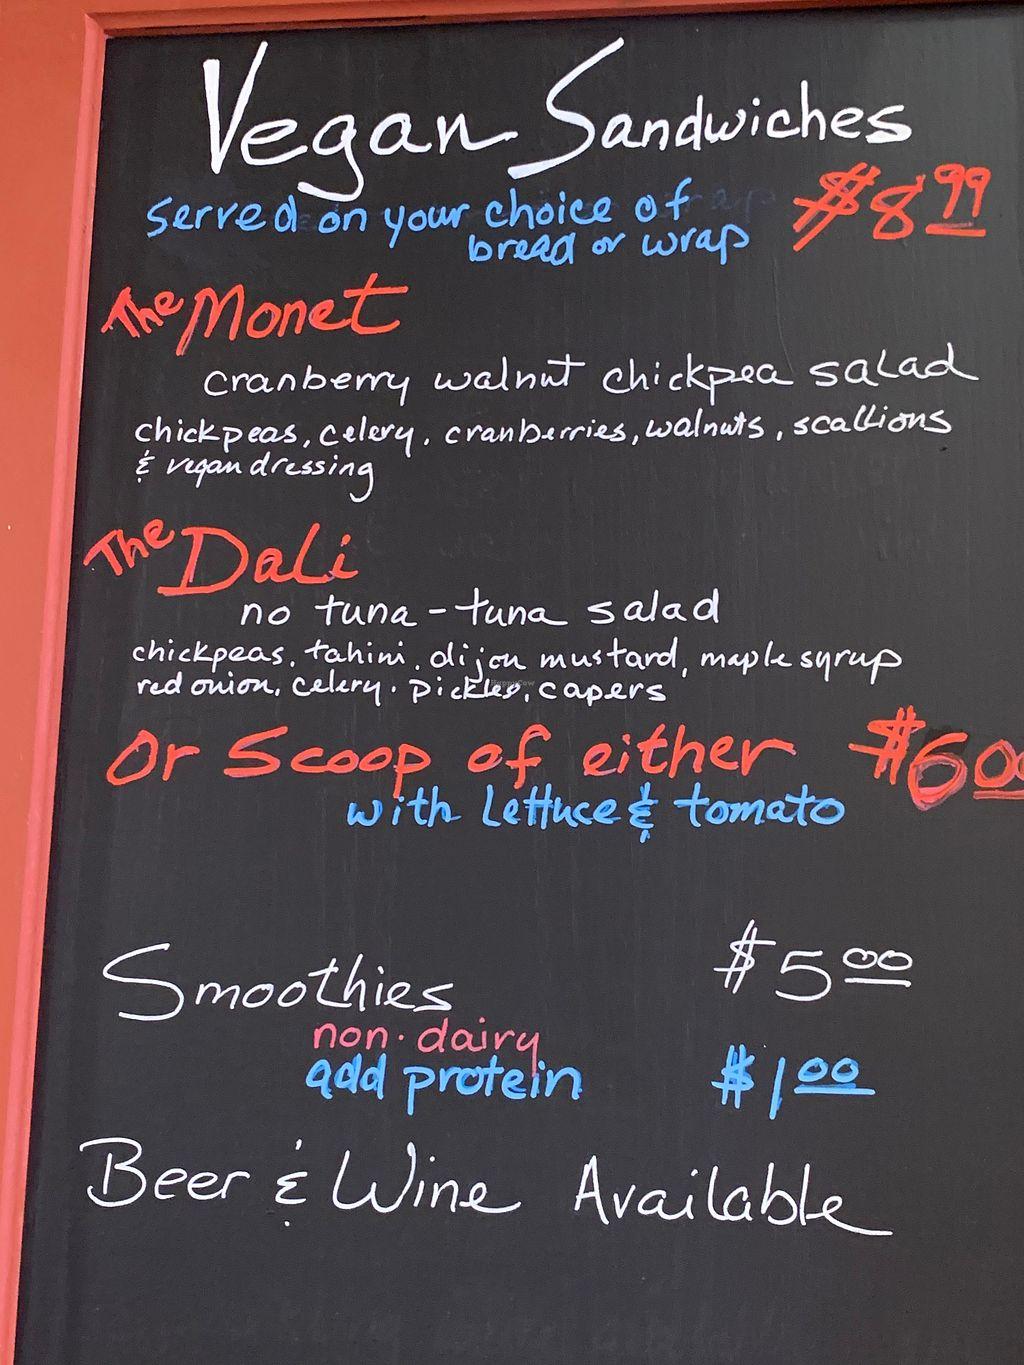 Vegan Sandwiches
served on your choice of $8.99
bread or wrap
The Monet
cranberry walnut chickpea salad
chickpeas, celery, cranberries, walnuts, scallions
& vegan dressing
The Dali
no tuna-tuna salad
chickpeas, tahini, dijon mustard, maple syrup
red onion, celery. pickles, capers
Or Scoop of either $6.00
with lettuce & tomato
Smoothies $5.00
non-dairy
add protein $1.00
Beer & Wine Available